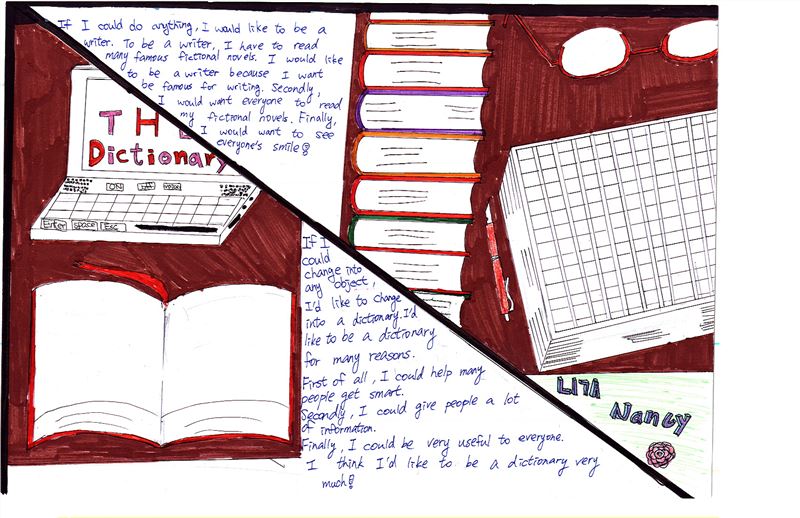 If I could do anything, I would like to be a
writer. To be a writer, I have to read
many famous fictional novels. I would like
to be a writer because I want
be famous for writing. Secondly,
I would want everyone to read
my fictional novels. Finally,
I would want to see
everyone's smile!
T H E
Dictionary
ON
Enter Esc
If I
could
change into
any object,
I'd like to change
into a dictionary. I'd
like to be a dictionary
for many reasons.
First of all, I could help many
people get smart.
Secondly, I could give people a lot
of information.
Finally, I could be very useful to everyone.
I think I'd like to be a dictionary very
much!
L171
Nancy